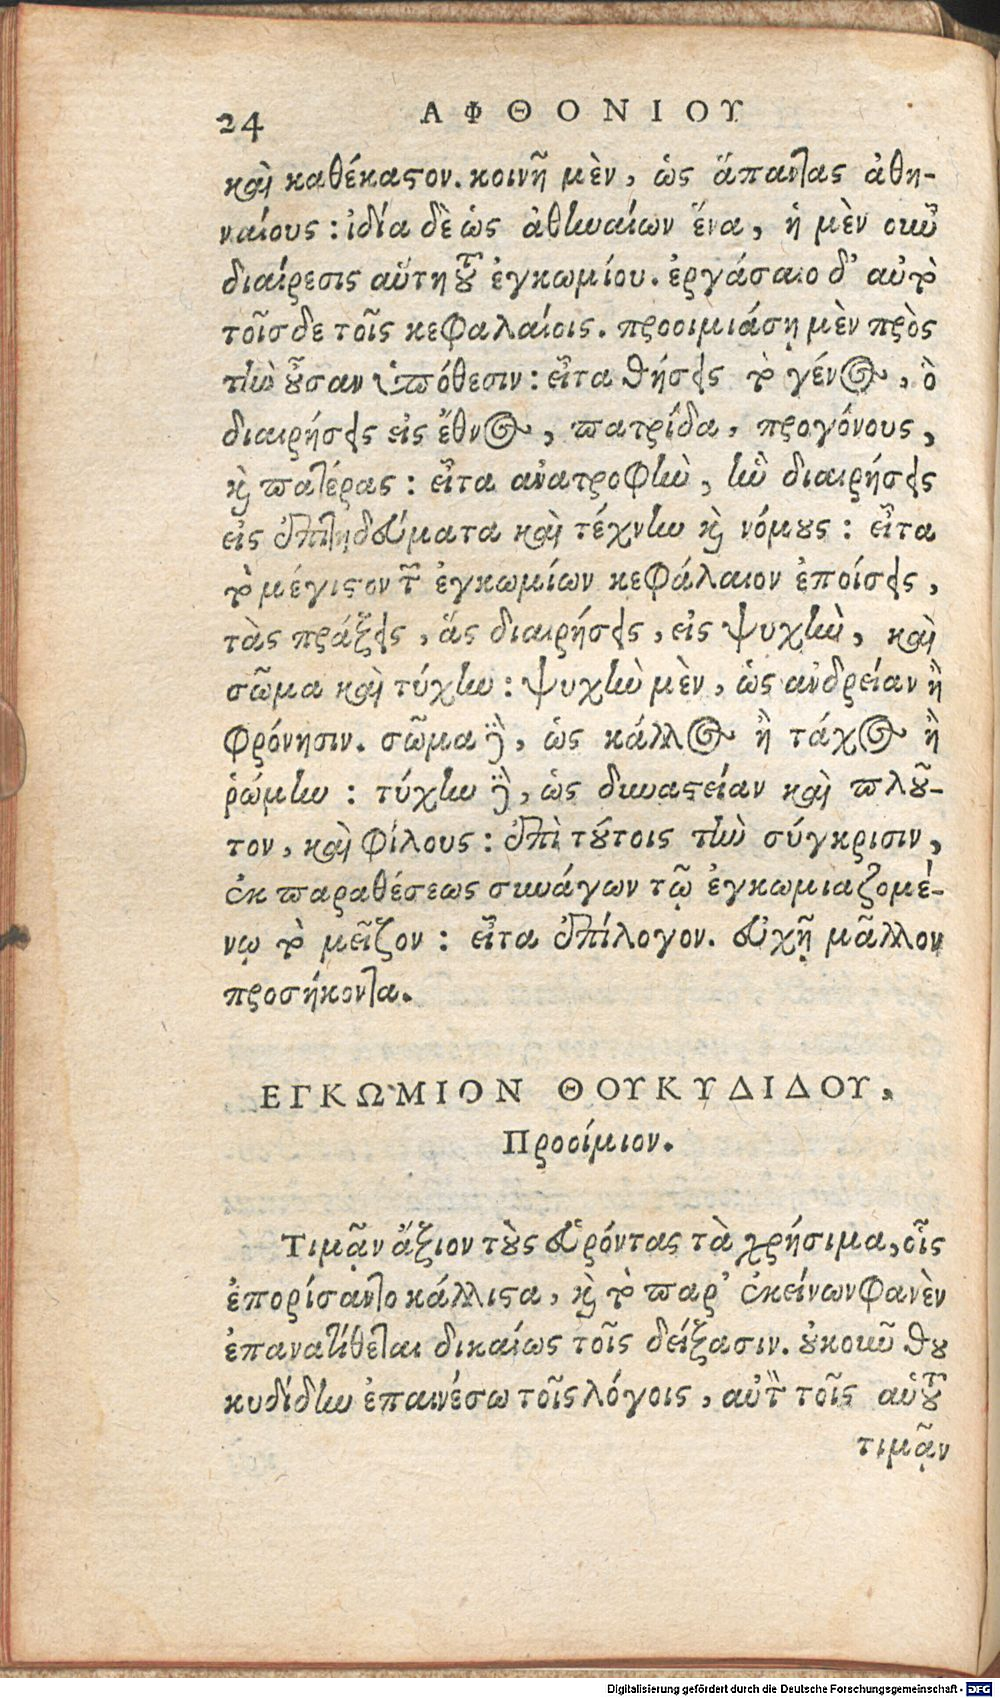 24 ΑΦΘΟΝΙΟΥ
καὶ καθέκαστον. κοινῇ μὲν, ὡς ἅπαντας ἀθη-
ναίους : ἰδία δὲ ὡς ἀθηναίων ἕνα, ἡ μὲν οὖν
διαίρεσις αὕτη τοῦ ἐγκωμίου. ἐργάσαιο δ' αὐτὸ
τοῖσδε τοῖς κεφαλαίοις. προοιμιάσῃ μὲν πρὸς
τὴν οὖσαν ὑπόθεσιν : εἶτα θήσεις τὸ γένος, ὃ
διαιρήσεις εἰς ἔθνος, πατρίδα, προγόνους,
καὶ πατέρας : εἶτα ἀνατροφὴν, ἣν διαιρήσεις
εἰς ἐπιτηδεύματα καὶ τέχνην καὶ νόμους : εἶτα
τὸ μέγιστον τῶν ἐγκωμίων κεφάλαιον ἐποίσεις,
τὰς πράξεις, ἃς διαιρήσεις, εἰς ψυχὴν, καὶ
σῶμα καὶ τύχην : ψυχὴν μὲν, ὡς ἀνδρείαν ἢ
φρόνησιν. σῶμα δὲ, ὡς κάλλος ἢ τάχος ἢ
ῥώμην : τύχην δὲ, ὡς δυναστείαν καὶ πλοῦ-
τον, καὶ φίλους : ἐπὶ τούτοις τὴν σύγκρισιν,
ἐκ παραθέσεως συνάγων τῷ ἐγκωμιαζομέ-
νῳ τὸ μεῖζον : εἶτα ἐπίλογον. εὐχῇ μᾶλλον
προσήκοντα.
ΕΓΚΩΜΙΟΝ ΘΟΥΚΥΔΙΔΟΥ,
Προοίμιον.
Τιμᾷν ἄξιον τοὺς εὑρόντας τὰ χρήσιμα, οἷς
ἐπορίσαντο κάλλιστα, καὶ τὸ παρ' ἐκείνων φανὲν
ἐπανατίθεται δικαίως τοῖς δείξασιν. οὐκοῦν θου
κυδίδην ἐπαινέσω τοῖς λόγοις, αὐτὸν τοῖς αὑτοῦ
τιμᾷν
Digitalisierung gefördert durch die Deutsche Forschungsgemeinschaft - DFG